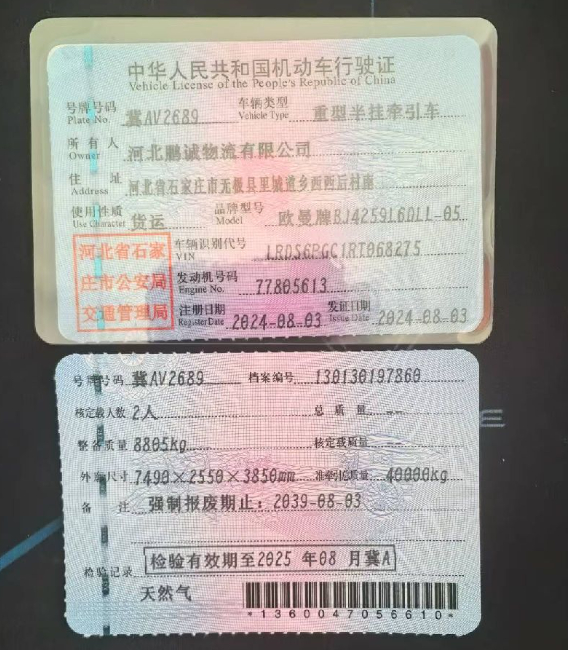 中华人民共和国机动车行驶证
Vehicle License of the People's Republic of China
号牌号码 冀AV2689 车辆类型 重型半挂牵引车
Plate No. Vehicle Type
所有人 河北鹏诚物流有限公司
Owner
住址 河北省石家庄市无极县里城道乡西西后村南
Address
使用性质 货运 品牌型号 欧曼牌BJ4259L6DLL-05
Use Character Model
河北省石家
庄市公安局
交通管理局
车辆识别代号 LRDS6PGC1RT068275
VIN
发动机号码 77805613
Engine No.
注册日期 2024-08-03 发证日期 2024-08-03
Register Date Issue Date
号牌号码 冀AV2689 档案编号 130130197860
核定载人数 2人 总质量 --
整备质量 8805kg 核定载质量 --
外廓尺寸 7490×2550×3850mm 准牵引总质量 40000kg
备注 强制报废期止：2039-08-03
检验记录 检验有效期至2025 年08 月冀A
天然气
*1360047056610*